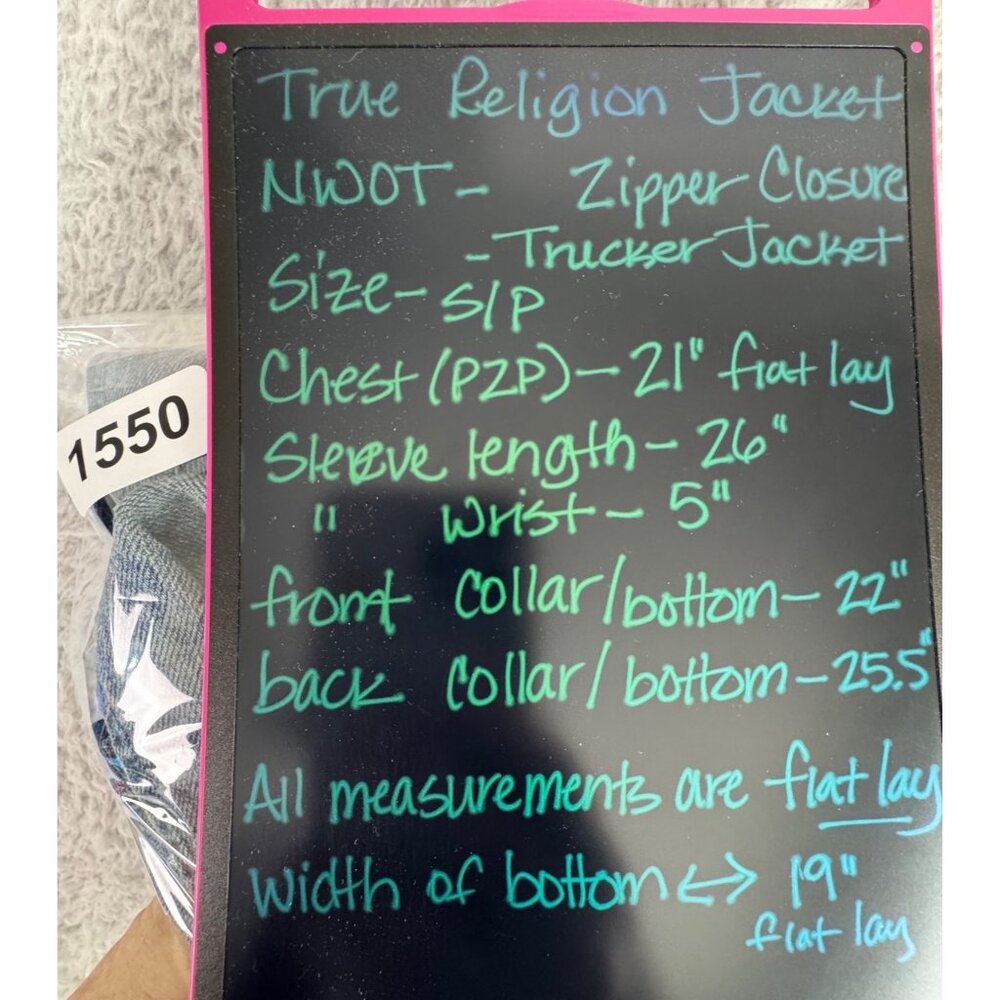 True Religion Jacket
NWOT - Zipper Closure
- Trucker Jacket
Size - S/P
Chest (P2P) - 21" flat lay
1550
Sleeve length - 26"
" Wrist - 5"
front collar/bottom - 22"
back collar/bottom - 25.5"
All measurements are flat lay
Width of bottom ↔ 19"
flat lay